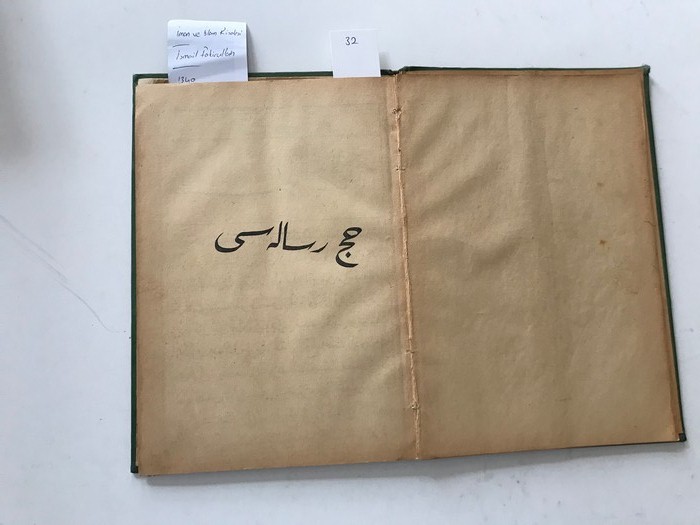 İman ve İslam Risalesi
İsmail Fahrullah
1340
32
حج رساله سی